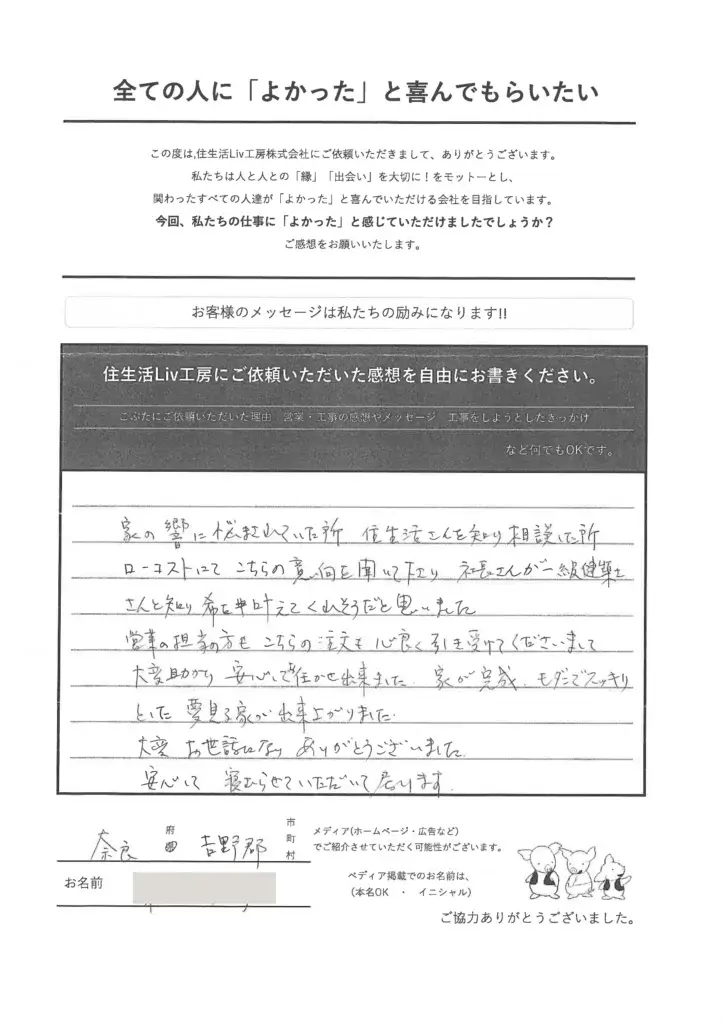 全ての人に「よかった」と喜んでもらいたい
この度は,住生活Liv工房株式会社にご依頼いただきまして、ありがとうございます。
私たちは人と人との「縁」「出会い」を大切に!をモットーとし、
関わったすべての人達が「よかった」と喜んでいただける会社を目指しています。
今回、私たちの仕事に「よかった」と感じていただけましたでしょうか?
ご感想をお願いいたします。
お客様のメッセージは私たちの励みになります!!
住生活Liv工房にご依頼いただいた感想を自由にお書きください。
こぶたにご依頼いただいた理由 営業・工事の感想やメッセージ 工事をしようとしたきっかけ
など何でもOKです。
家の響に悩まされていた所 住生活さんを知り相談した所
ローコストにて こちらの意向を聞いて下り 社長さんが一級建築士
さんと知り希望叶えてくれそうだと思いました
営業の担当の方も こちらの注文も 心良く引き受けてくださいまして
大変助かり 安心して任かせ出来ました. 家が完成、モダンでスッキリ
とした 夢見る家が出来上がりました.
大変 お世話になり ありがとうございました.
安心して 寝むらせていただいて居ります.
奈良 府県 吉野郡 市町村
お名前
メディア(ホームページ・広告など)
でご紹介させていただく可能性がございます。
ペディア掲載でのお名前は、
(本名OK ・ イニシャル)
ご協力ありがとうございました。